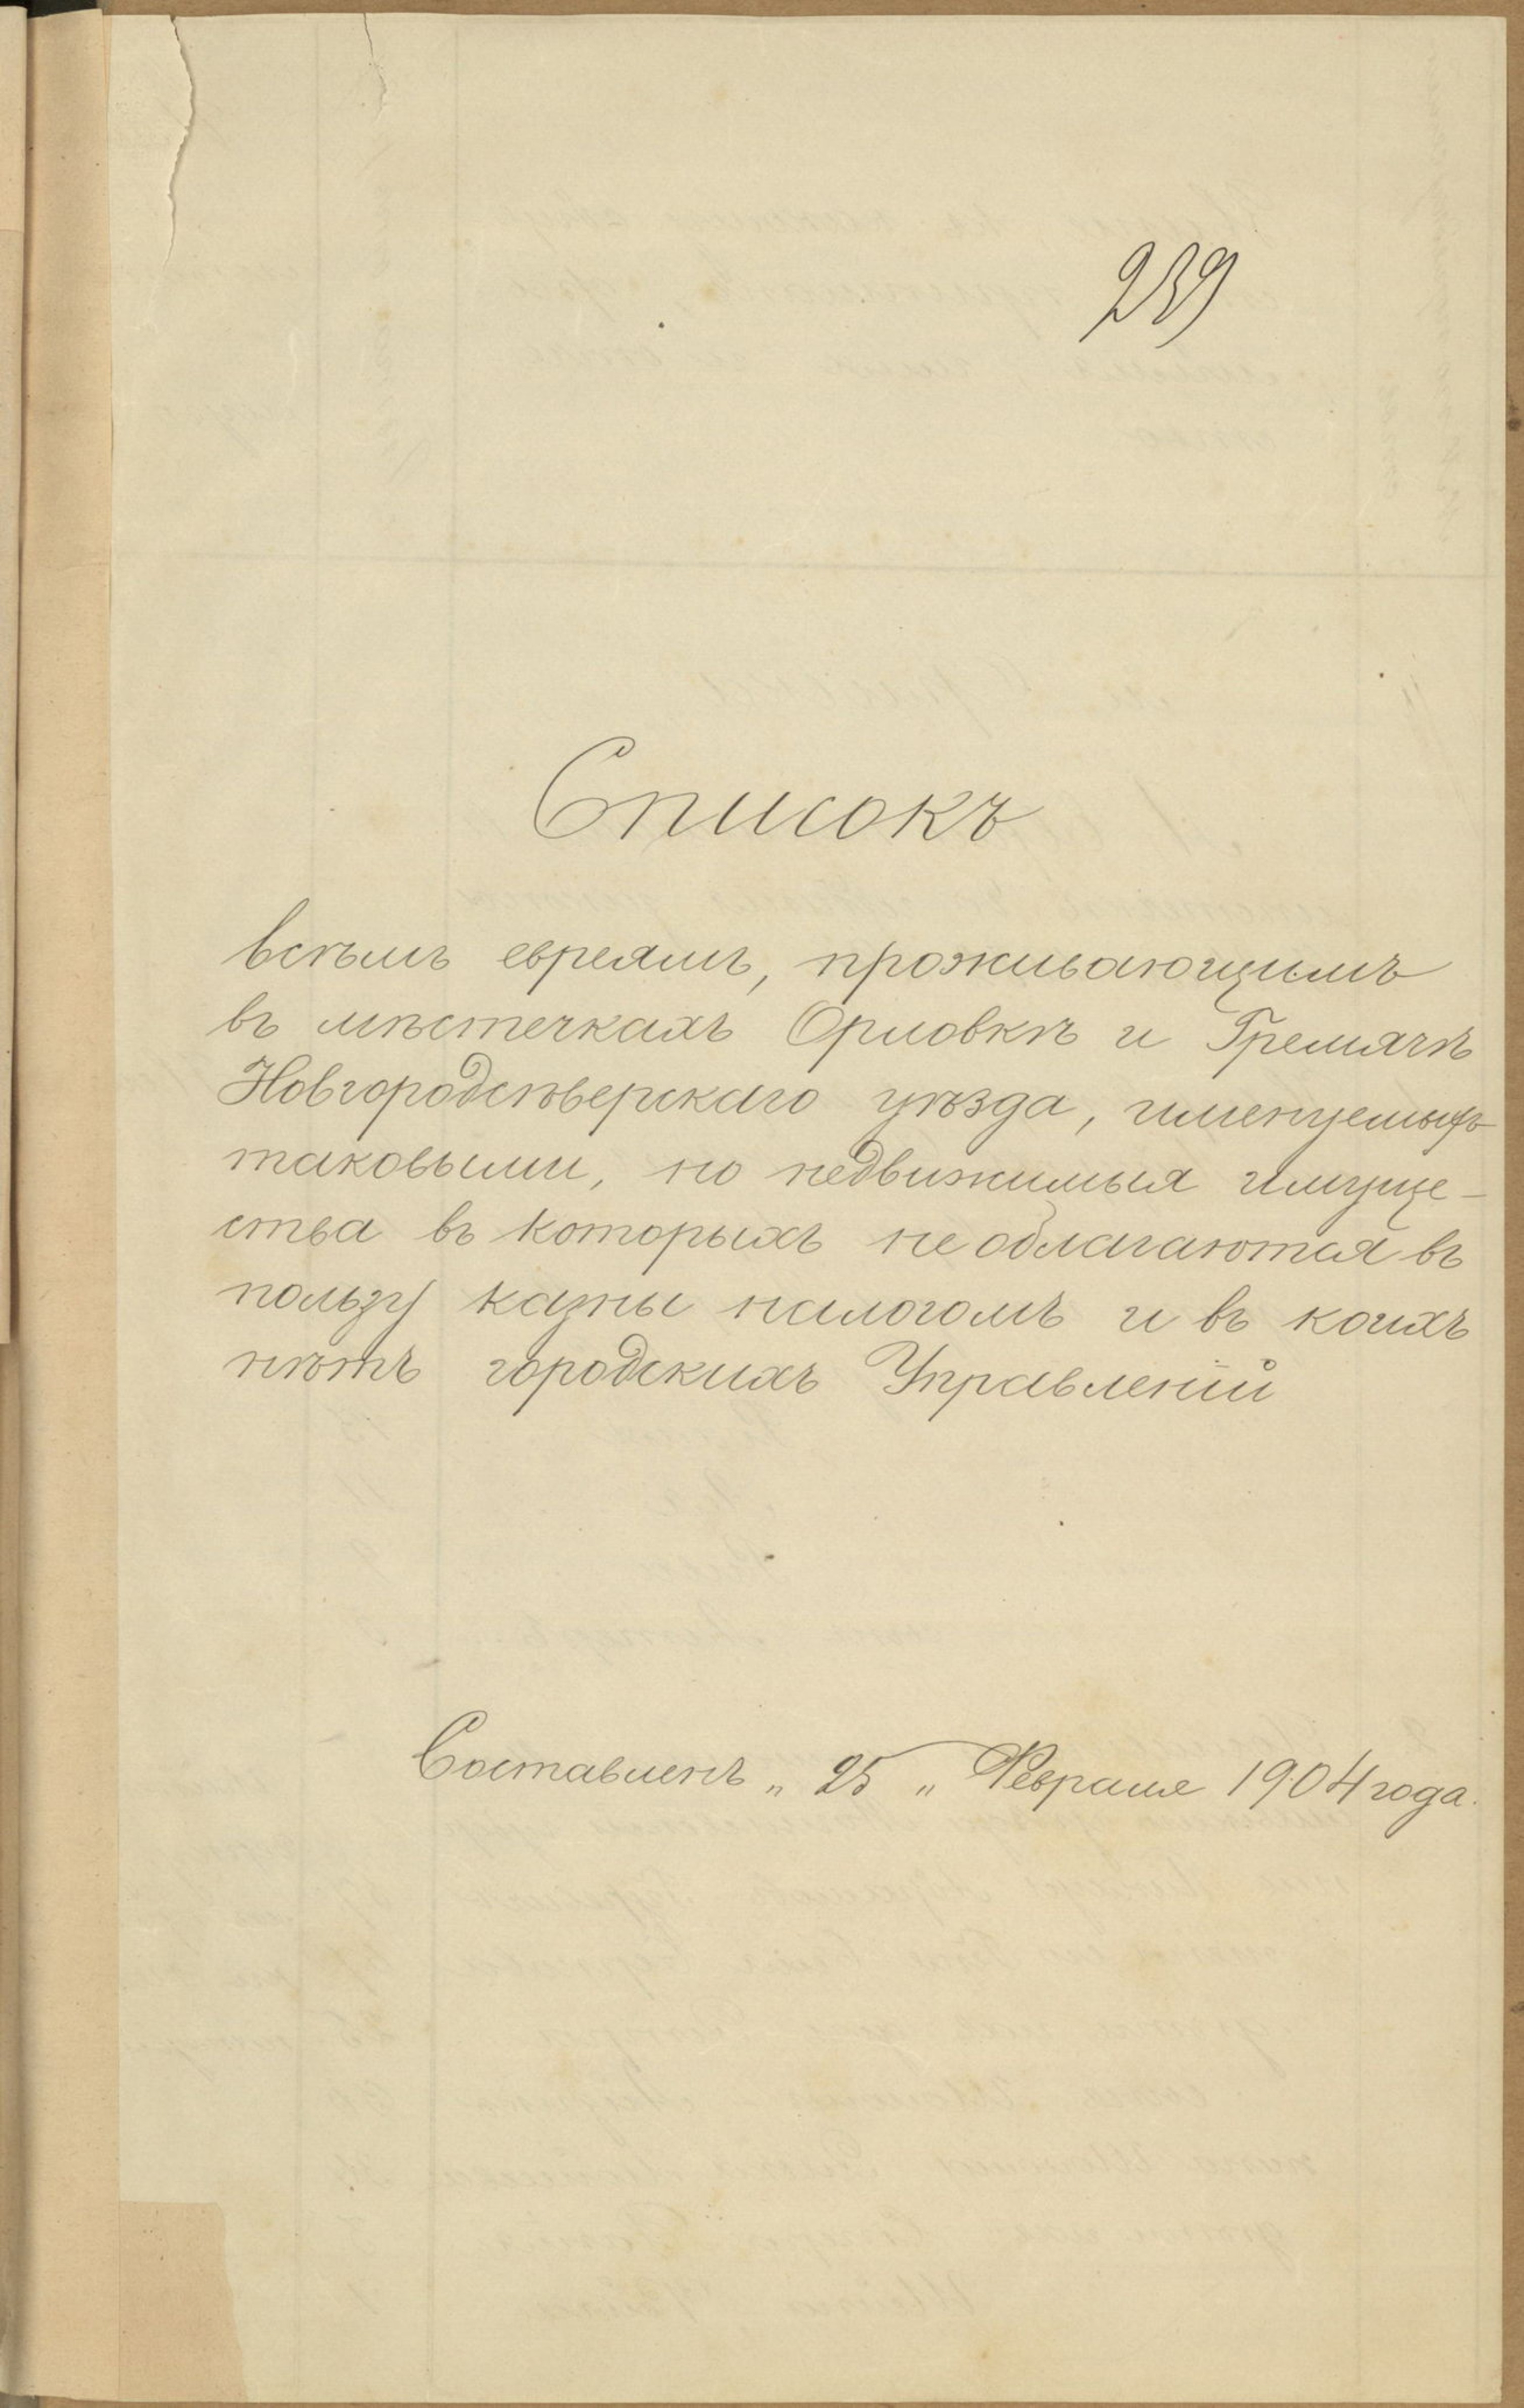 239
Списокъ
всѣмъ евреямъ, проживающимъ
въ мѣстечкахъ Орловкѣ и Гремячѣ
Новгородсѣверскаго уѣзда, именуемыхъ
таковыми, но недвижимыя имуще-
ства въ которыхъ не облагаются въ
пользу казны налогомъ и въ коихъ
нѣтъ городскихъ Управленій
Составленъ „ 25 „ Февраля 1904 года.